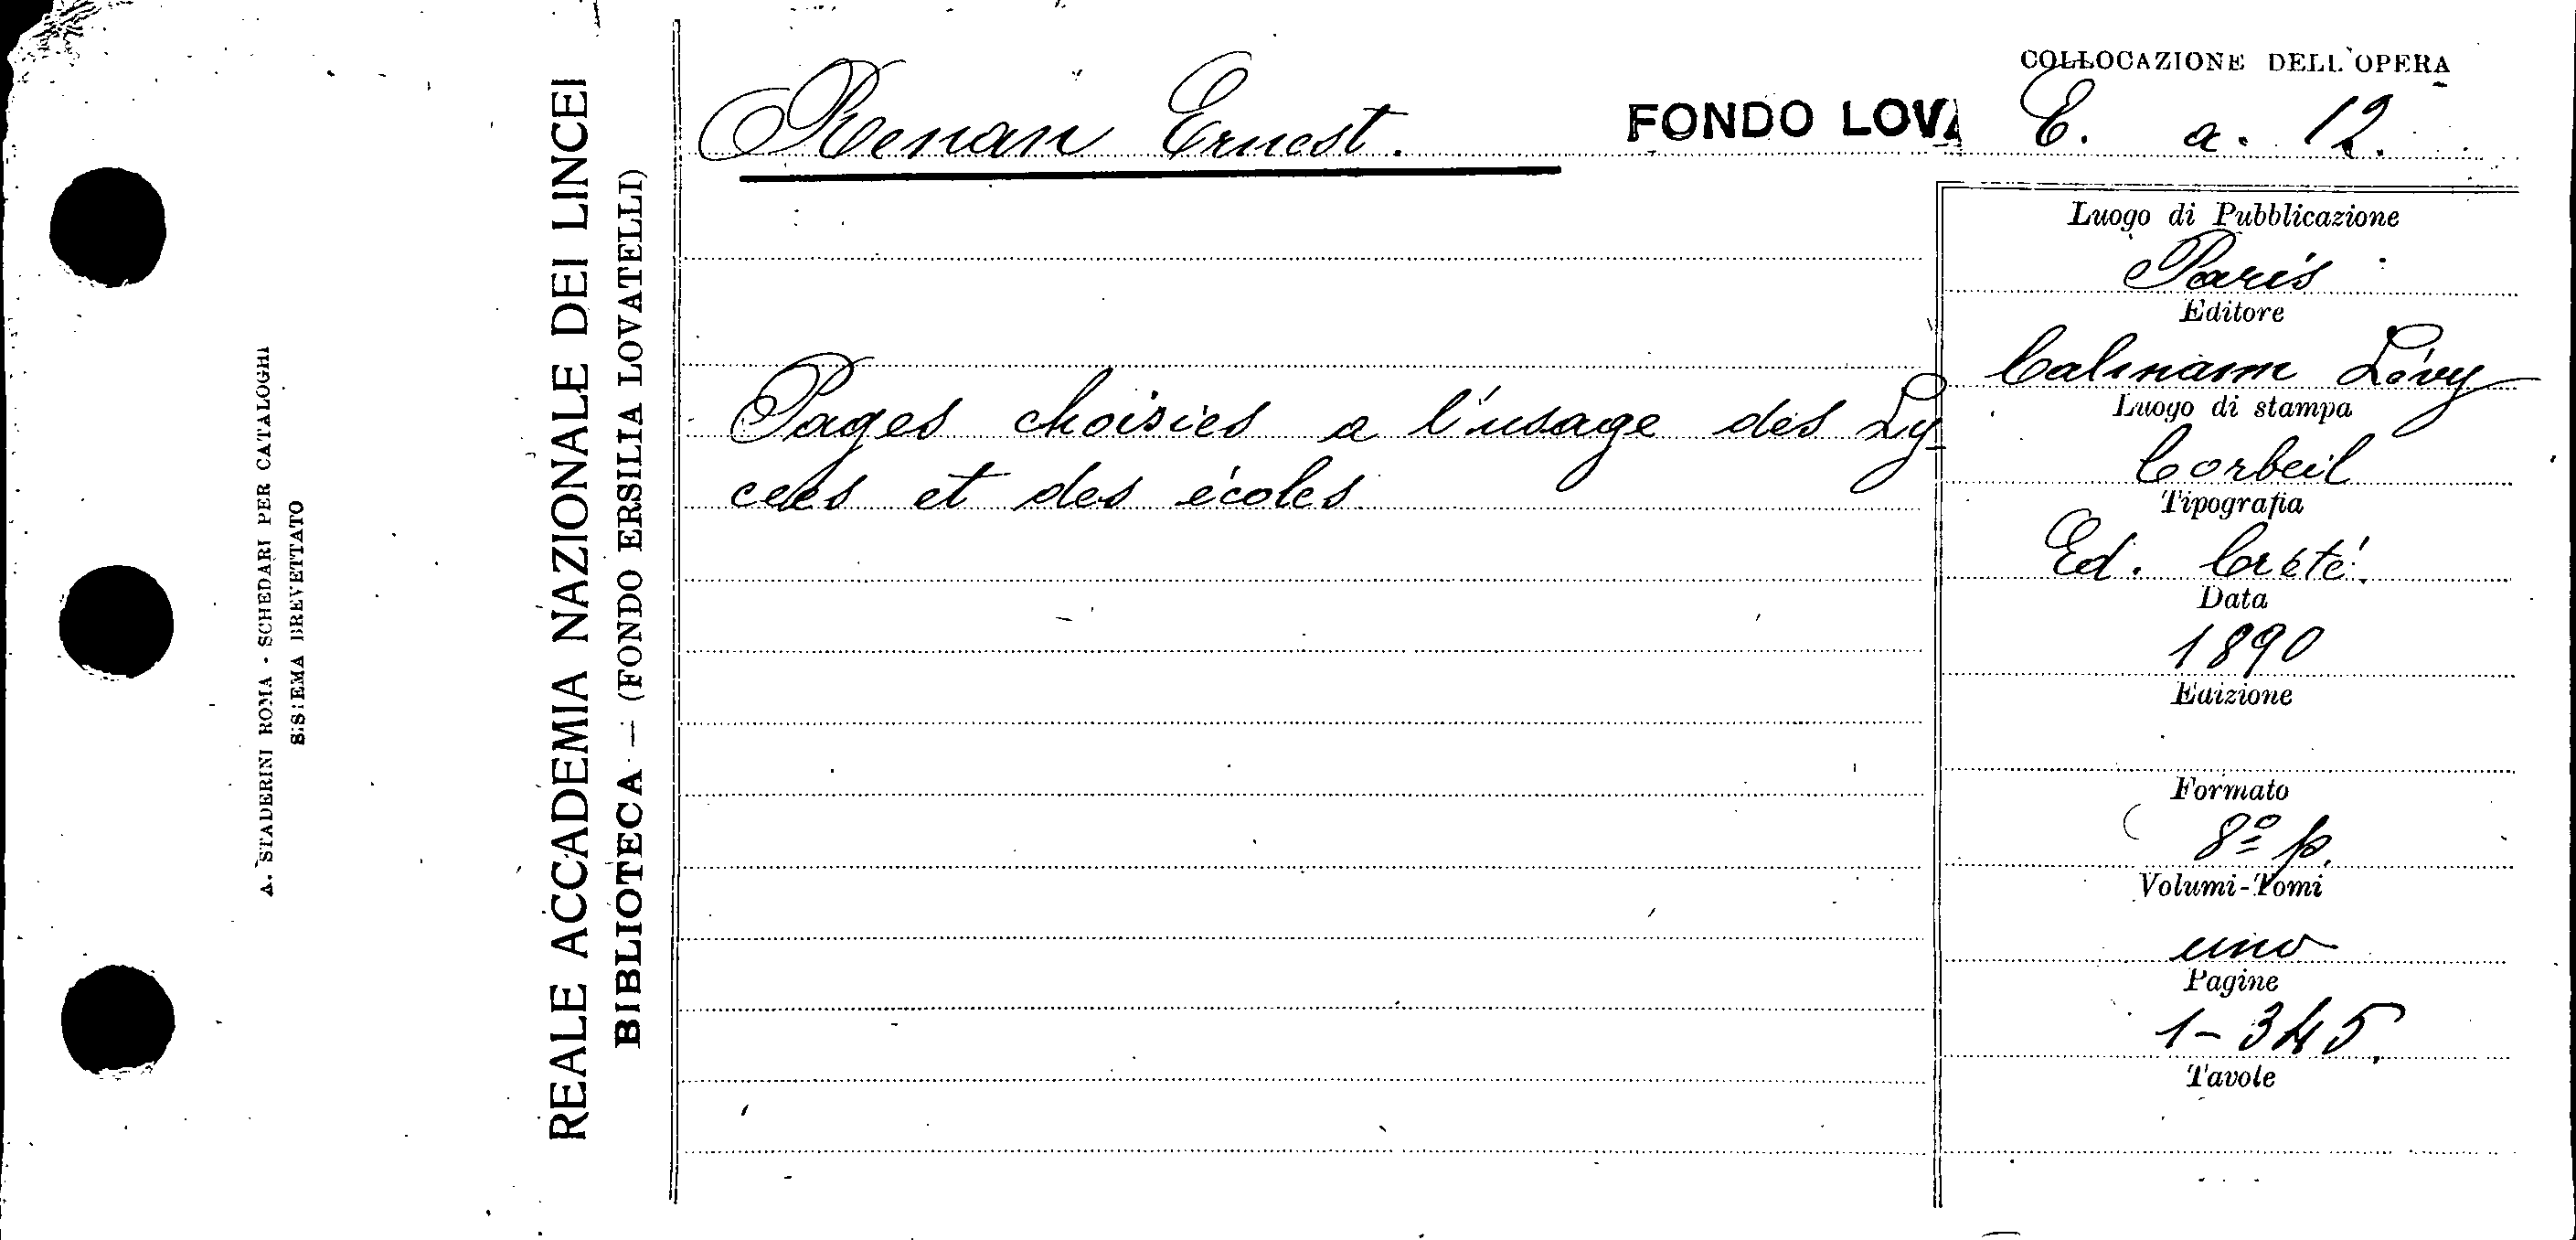 A. STADERINI ROMA - SCHEDARI PER CATALOGHI
SISTEMA BREVETTATO
REALE ACCADEMIA NAZIONALE DEI LINCEI
BIBLIOTECA — (FONDO ERSILIA LOVATELLI)
Renan Ernest.
FONDO LOVA
COLLOCAZIONE DELL'OPERA
C. a. 12.
Pages choisies a l'usage des Ly-
cées et des écoles
Luogo di Pubblicazione
Paris
Editore
Calmann Lévy
Luogo di stampa
Corbeil
Tipografia
Ed. Crété.
Data
1890
Edizione
Formato
8º p.
Volumi-Tomi
uno
Pagine
1-345.
Tavole